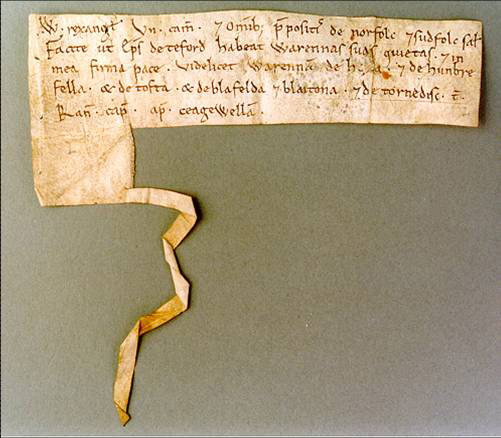 .W. rex anglꝝ Vn. cam̄. ⁊ Omib; p̄positis de norfolc ⁊ sudfolc sal̄
Facite ut ep̄s de teford habeat Warennas suas quietas. ⁊ in
mea firma pace. Videlicet Warennā de ⁊ de hunbre
fella. & de tofta. & de blafelda ⁊ blaitona. ⁊ de tornedisc. T̄.
Ran̄. cap̄. ap̄. ceagewellā.